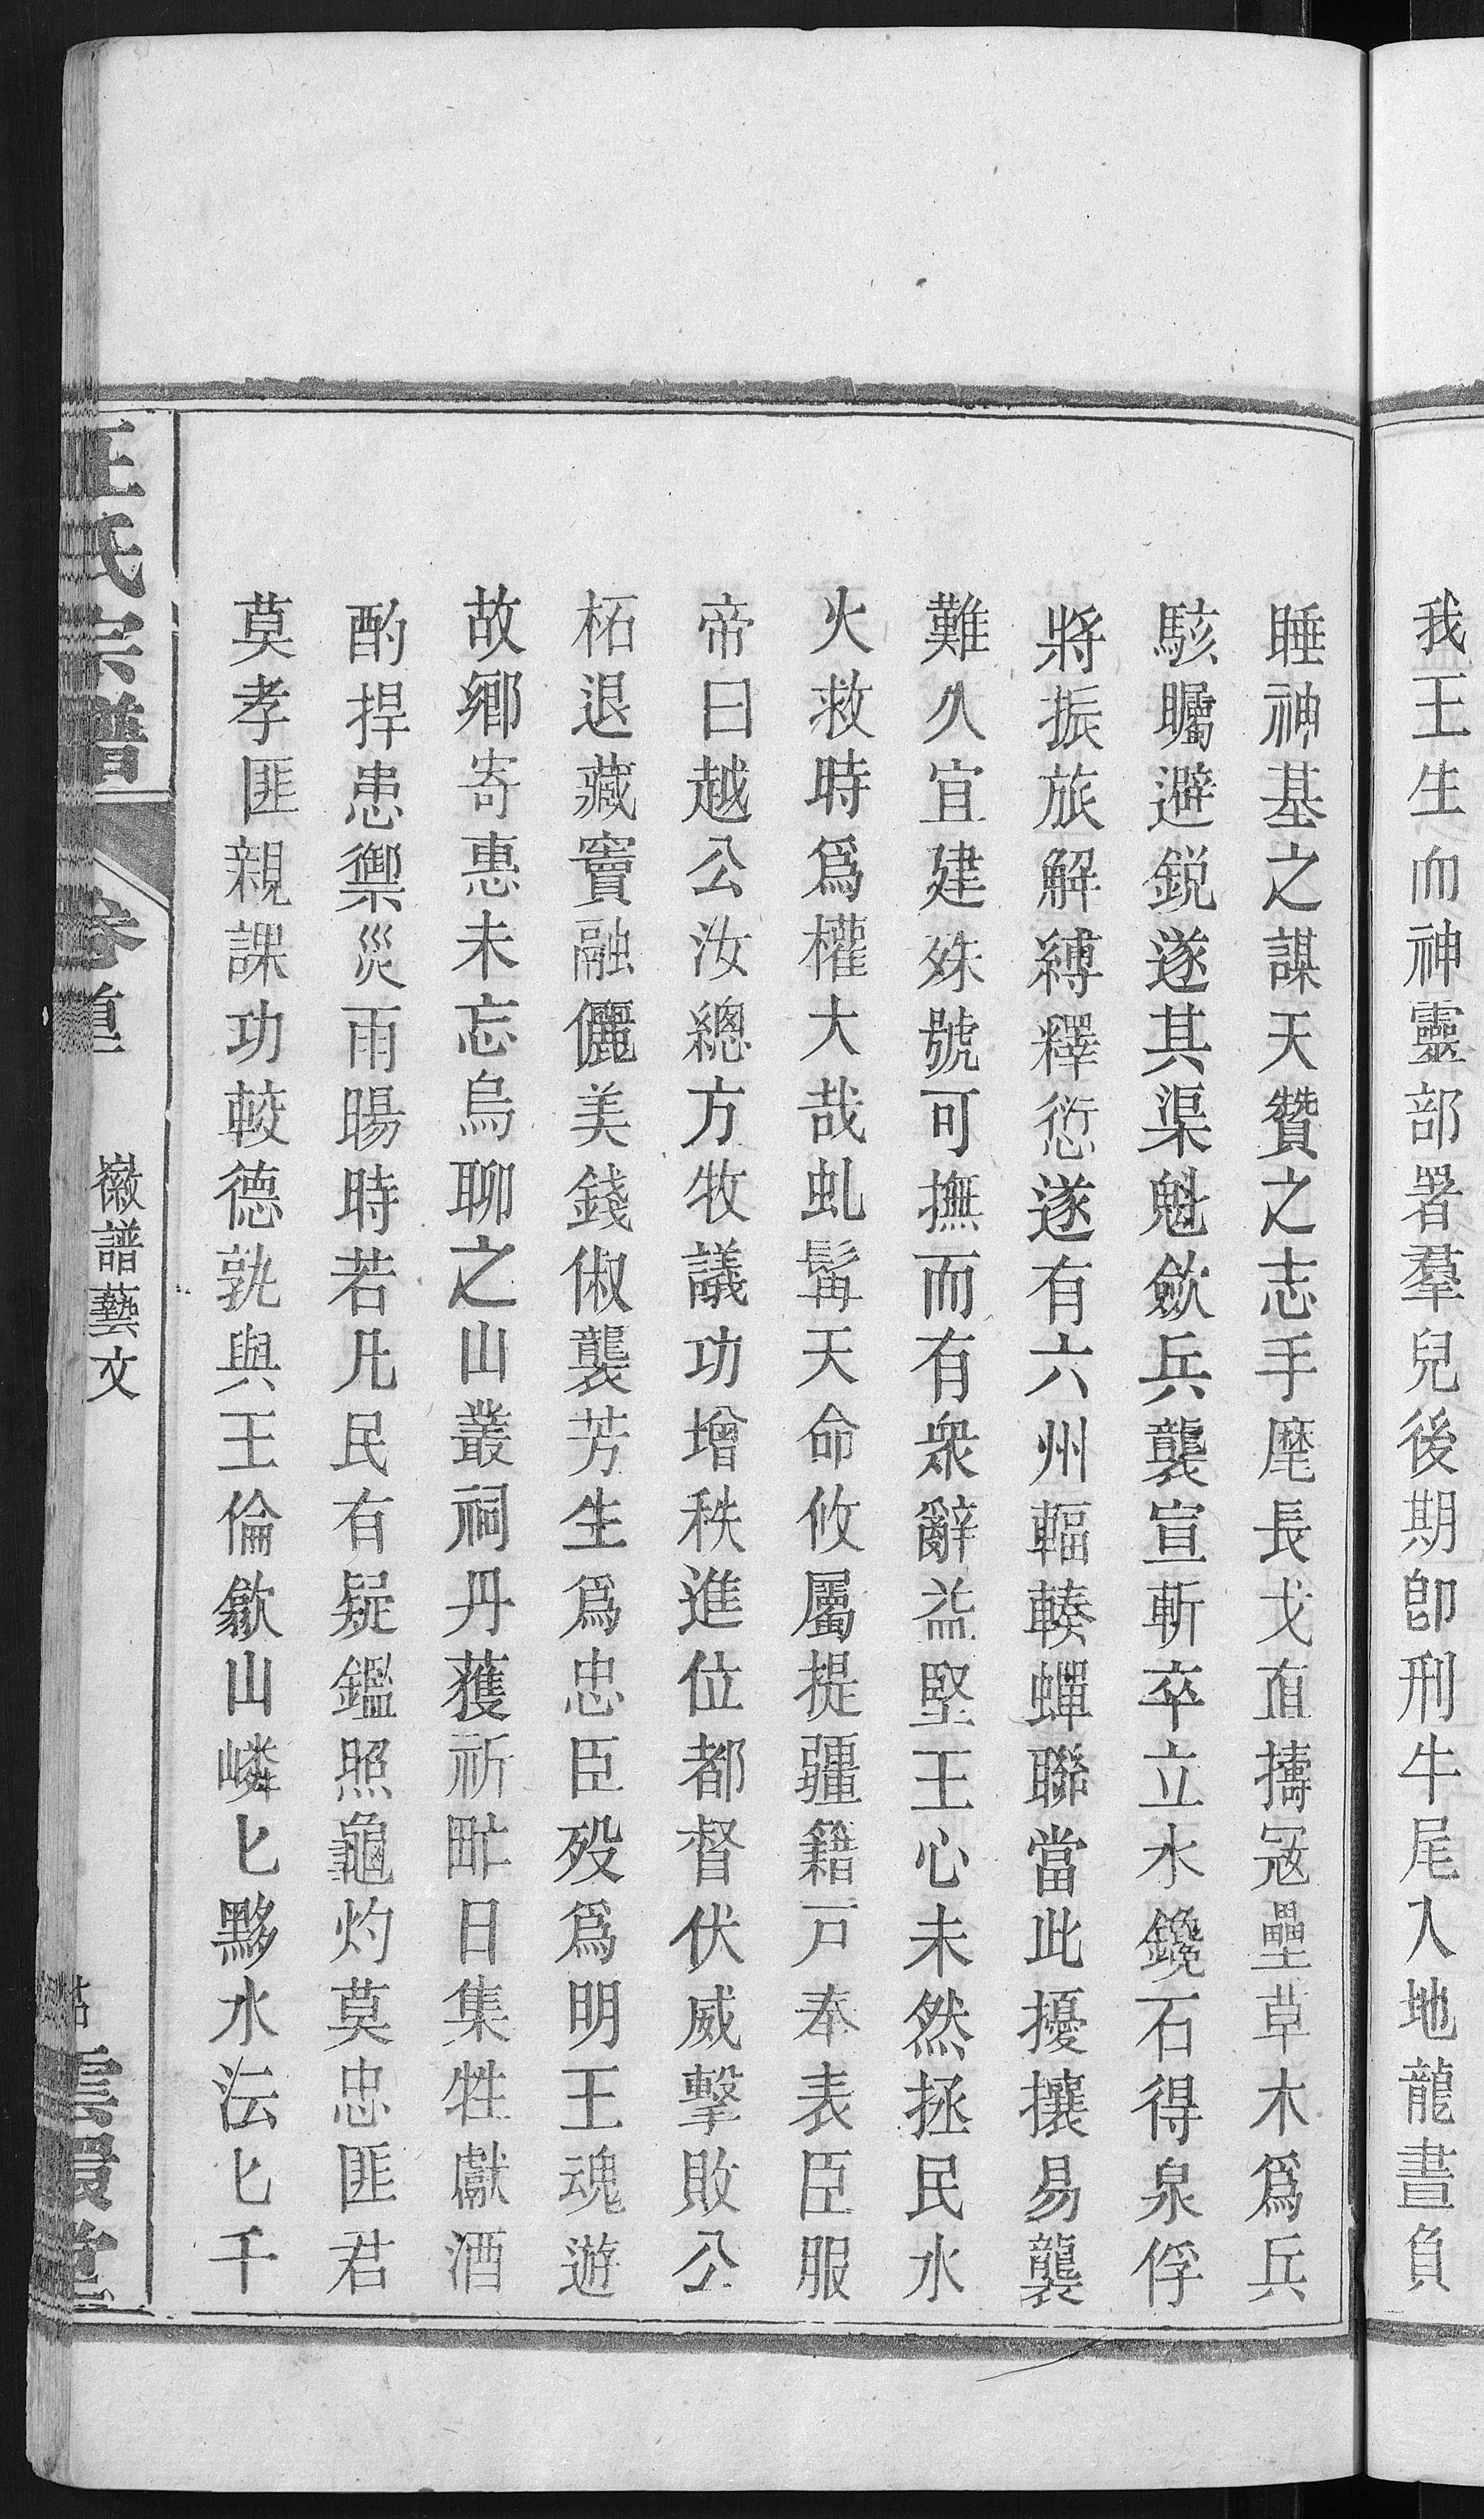 我王生而神靈部署羣兒後期卽刑牛尾入地龍晝負
睡神基之謀天贊之志手麾長戈直擣寇壘草木爲兵
駭矚避鋭遂其渠魁歛兵襲宣斬卒立水鑱石得泉俘
將振旅解縛釋愆遂有六州輻輳蟬聯當此擾攘易襲
難久宜建殊號可撫而有衆辭益堅王心未然拯民水
火救時爲權大哉虬髯天命攸屬提疆籍戸奉表臣服
帝曰越公汝總方牧議功增秩進位都督伏威擊敗公
柘退藏竇融儷美錢俶襲芳生爲忠臣殁爲明王魂遊
故鄉寄惠未忘烏聊之山叢祠丹獲祈甿日集牲獻酒
酌捍患禦災雨暘時若凡民有疑鑑照龜灼莫忠匪君
莫孝匪親課功較德孰與王倫歙山嶙匕黟水沄匕千
汪氏宗譜
徽譜藝文
雲環堂